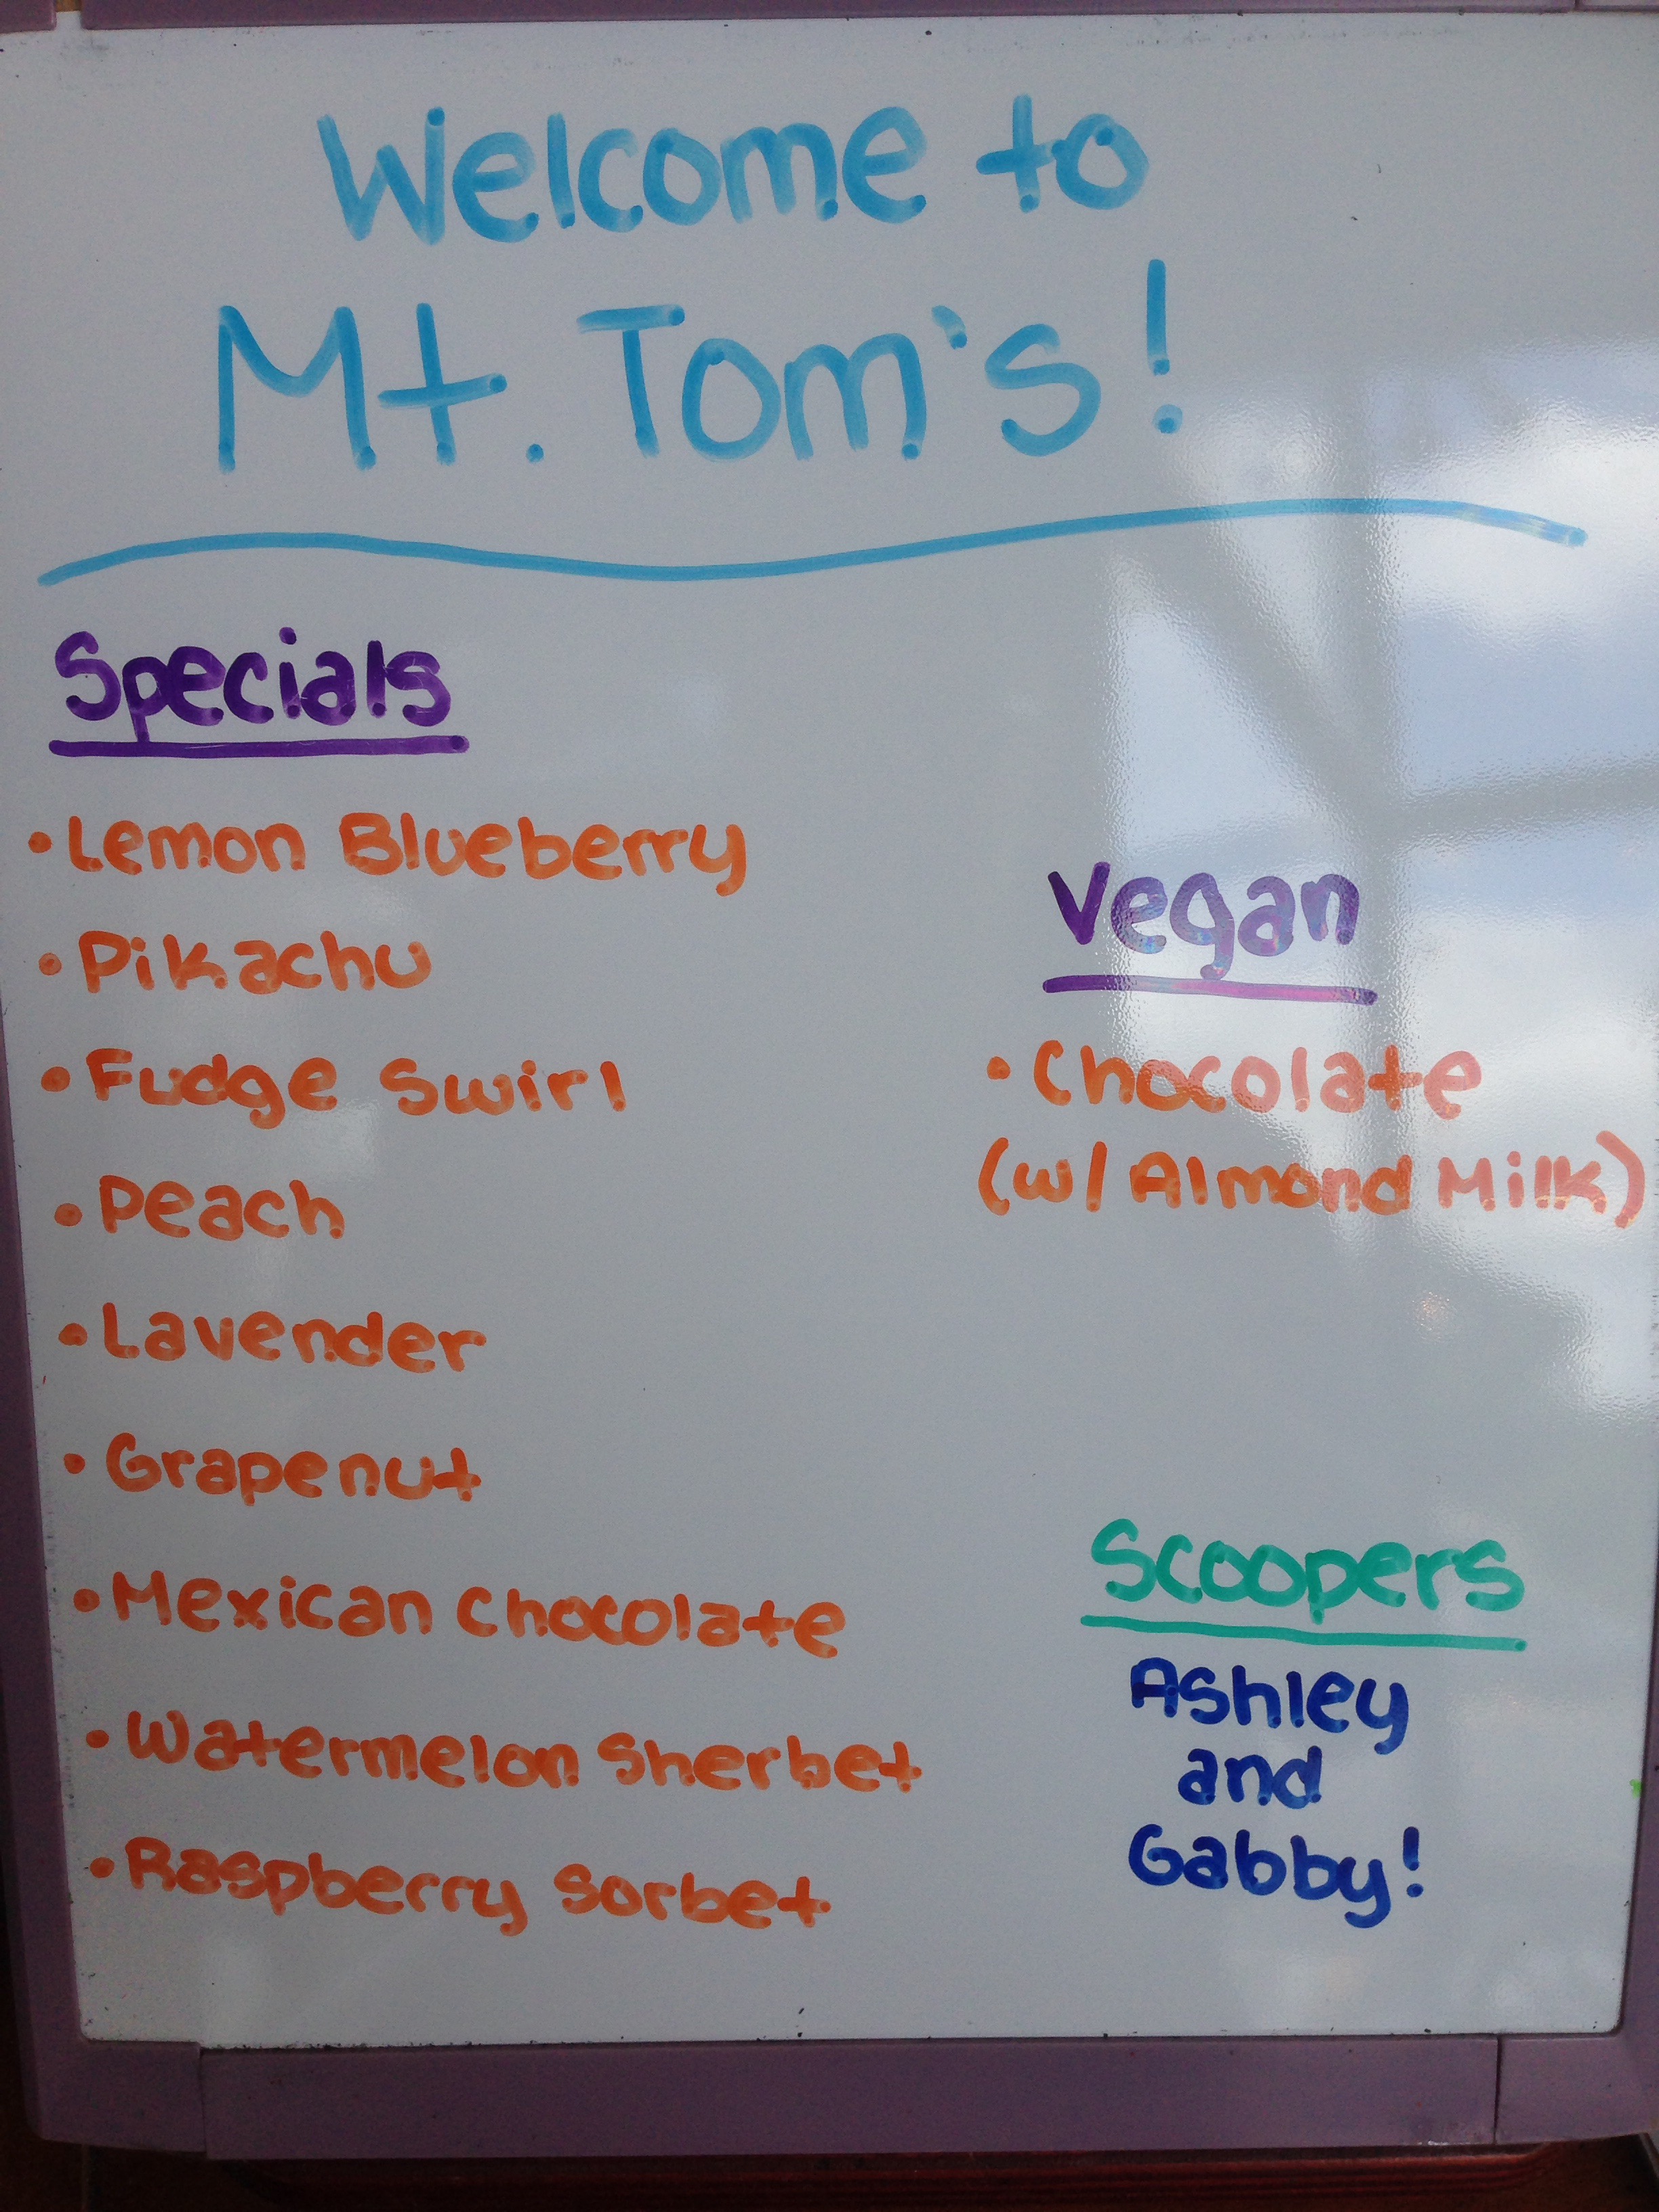 Welcome to
Mt. Tom's!
Specials
• Lemon Blueberry
• Pikachu
• Fudge Swirl
• Peach
• Lavender
• Grapenut
• Mexican Chocolate
• Watermelon Sherbet
• Raspberry Sorbet
Vegan
• Chocolate
(w/ Almond Milk)
Scoopers
Ashley
and
Gabby!